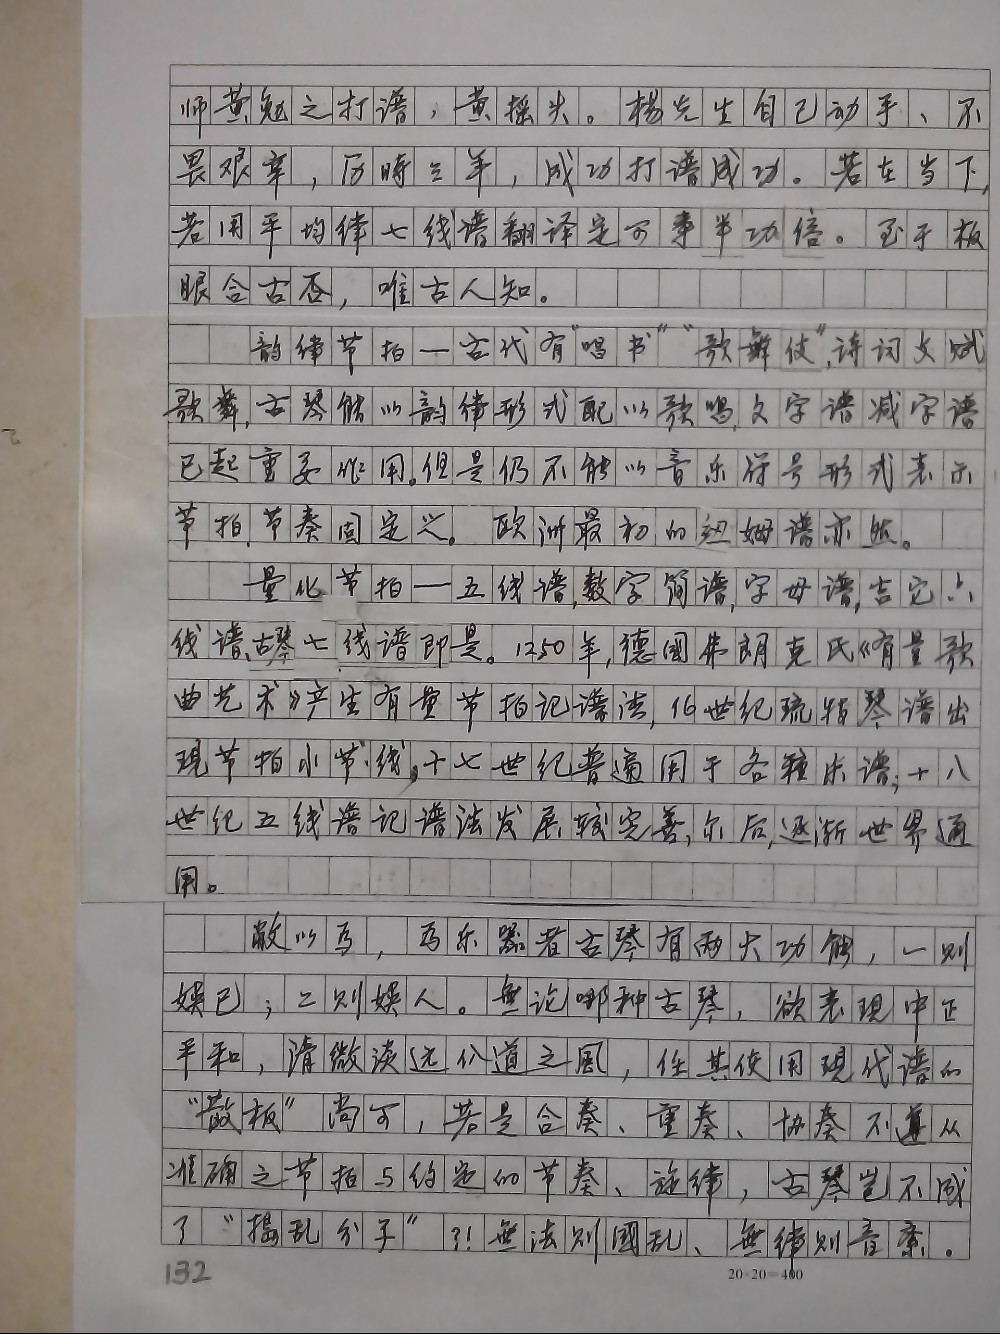 师黄勉之打谱，黄摇头。杨先生自己动手、不
畏艰辛，历時三年，成功打谱成功。若在当下,
若用平均律七线谱翻译定可事半功倍。至于板
眼合古否，唯古人知。
韵律节拍—古代有"唱书""歌舞伎",诗词文赋
歌舞,古琴能以韵律形式配以歌唱,文字谱减字谱
已起重要作用。但是仍不能以音乐符号形式表示
节拍、节奏固定义。欧洲最初的纽姆谱亦然。
量化节拍—五线谱,数字简谱,字母谱,吉它六
线谱、古琴七线谱即是。1250年,德國弗朗克氏《有量歌
曲艺术》产生有量节拍记谱法,16世纪琉特琴谱出
現节拍小节线,十七世纪普遍用于各種乐谱;十八
世纪五线谱记谱法发展較完善,尔后,逐渐世界通
用。
敝以為，為乐器者古琴有两大功能，一则
娱己；二则娱人。無论哪种古琴，欲表現中正
平和，清微淡远仙道之風，任其使用現代谱的
"散板"尚可，若是合奏、重奏、协奏不遵从
准确之节拍与约定的节奏、旋律，古琴岂不成
了"搗乱分子"?!無法则國乱、無律则音紊。
132
20×20=400